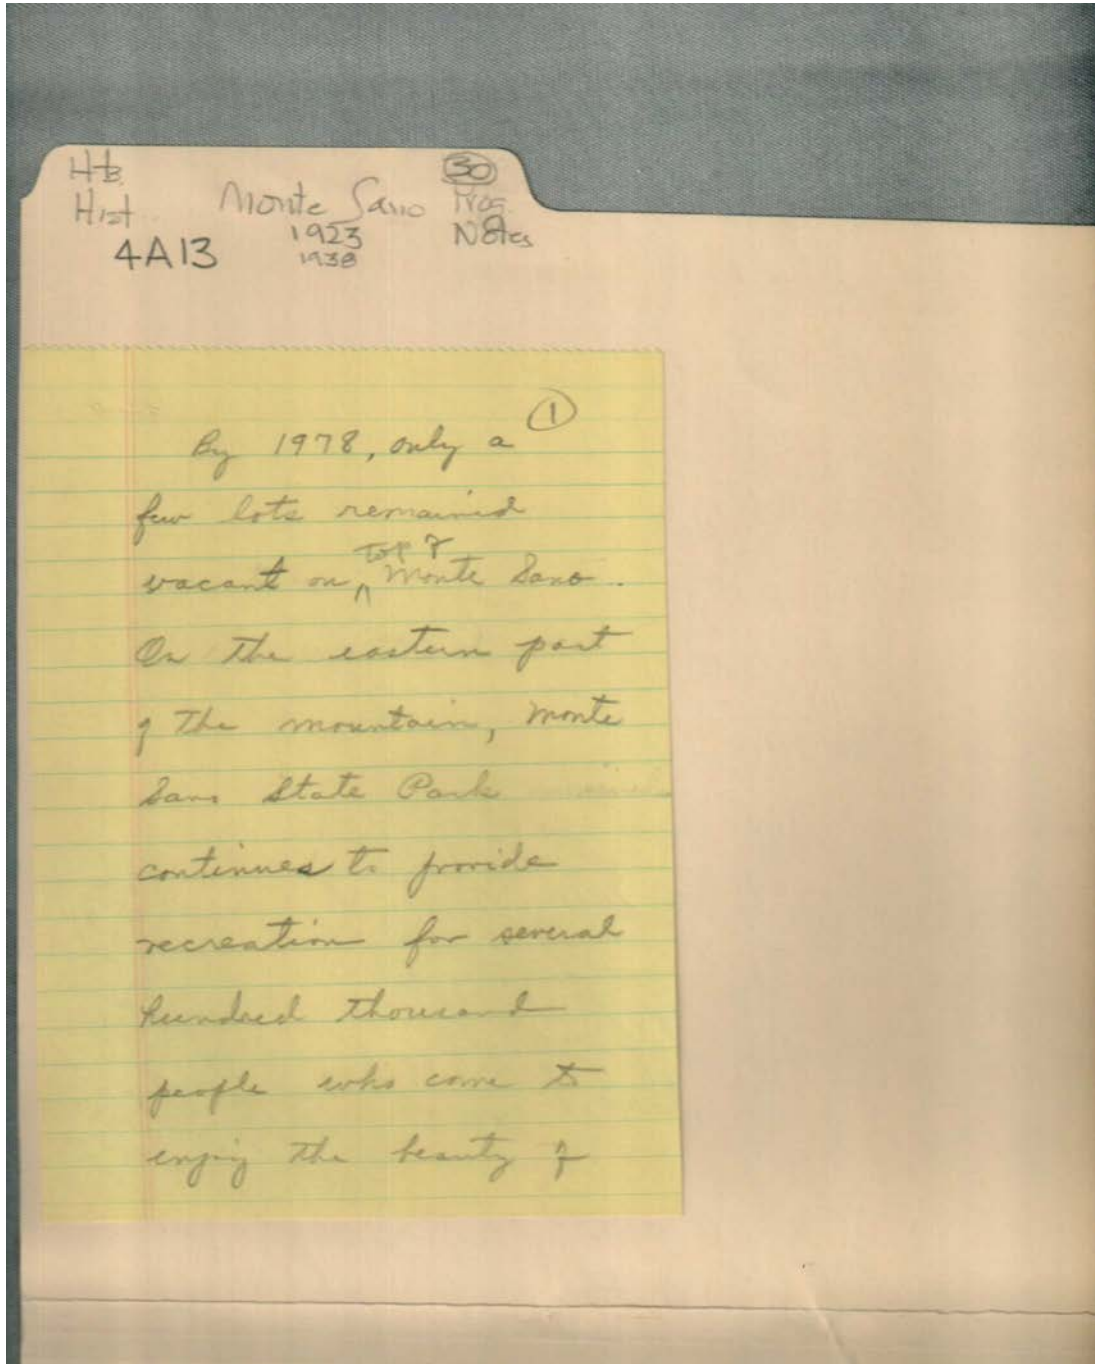 Hist
Monte Sano
30
Notes
1923
4A13
1938
1
By 1978, only a
few lots remained
top of
vacant on ^ Monte Sano.
On the eastern part
of the mountain, Monte
Sano State Park
continues to provide
recreation for several
hundred thousand
people who come to
enjoy the beauty of